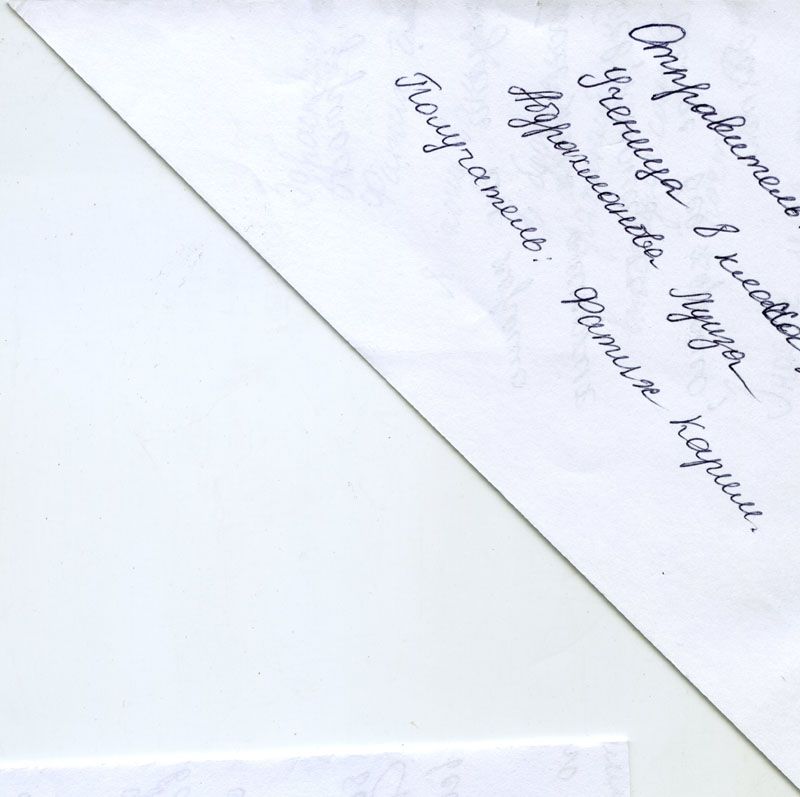 Отправитель:
Ученица 8 класса
Абдрахманова Луиза
Получатель: Фатых Карим.